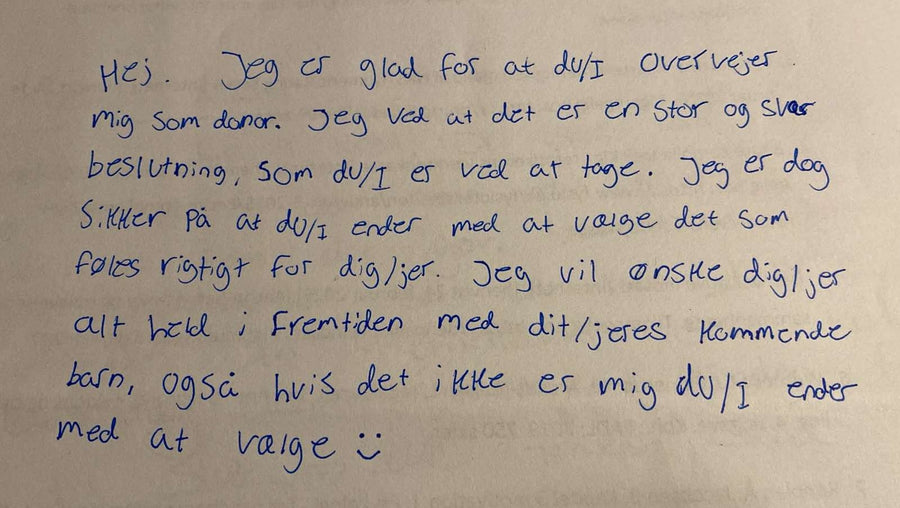 Hej. Jeg er glad for at du/I overvejer
mig som donor. Jeg ved at det er en stor og svær
beslutning, som du/I er ved at tage. Jeg er dog
sikker på at du/I ender med at vælge det som
føles rigtigt for dig/jer. Jeg vil ønske dig/jer
alt held i fremtiden med dit/jeres kommende
barn, også hvis det ikke er mig du/I ender
med at vælge :)